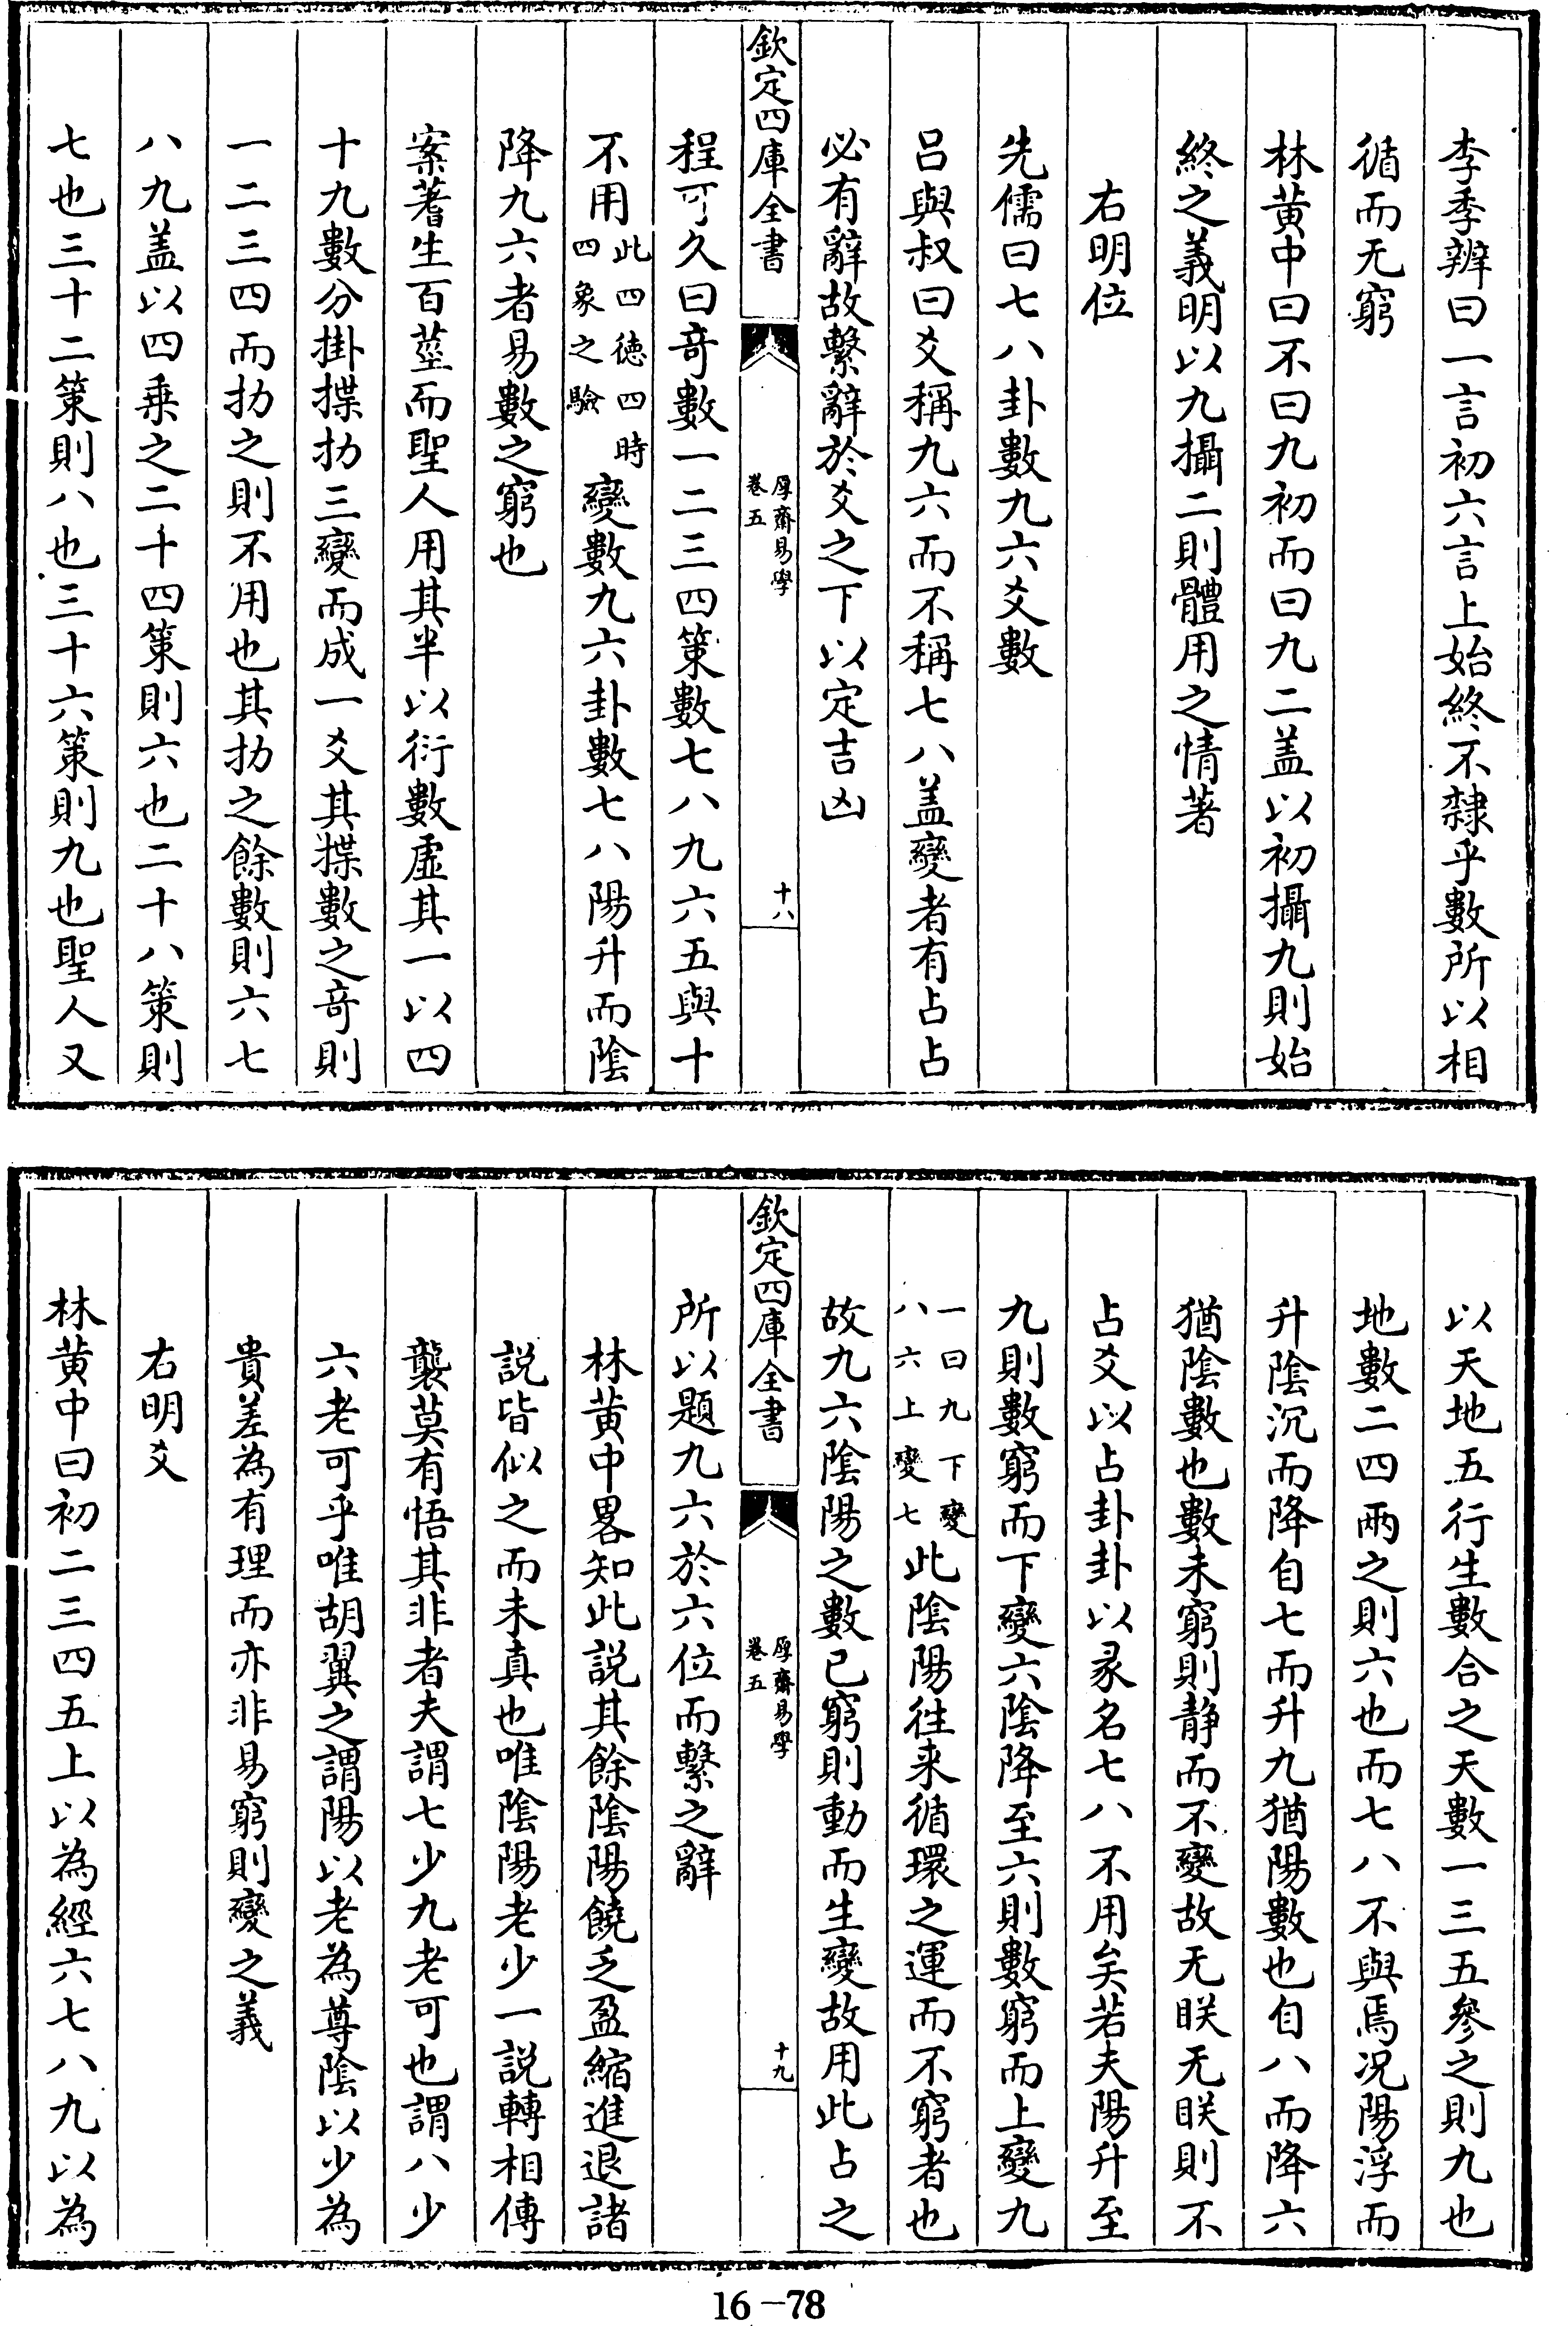 李季辨曰一言初六言上始終不隸乎數所以相
循而无窮
林黄中曰不曰九初而曰九二盖以初攝九則始
終之義明以九攝二則體用之情著
右明位
先儒曰七八卦數九六爻數
吕與叔曰爻稱九六而不稱七八盖變者有占占
必有辭故繫辭於爻之下以定吉凶
欽定四庫全書
厚齋易學
卷五
十八
程可久曰竒數一二三四策數七八九六五與十
不用此四徳四時四象之驗變數九六卦數七八陽升而陰
降九六者易數之窮也
案蓍生百莖而聖人用其半以衍數虚其一以四
十九數分掛揲扐三變而成一爻其揲數之竒則
一二三四而扐之則不用也其扐之餘數則六七
八九盖以四乗之二十四策則六也二十八策則
七也三十二策則八也三十六策則九也聖人又
以天地五行生數合之天數一三五參之則九也
地數二四兩之則六也而七八不與焉况陽浮而
升陰沉而降自七而升九猶陽數也自八而降六
猶陰數也數未窮則静而不變故无眹无眹則不
占爻以占卦卦以彖名七八不用矣若夫陽升至
九則數窮而下變六陰降至六則數窮而上變九
一曰九下變八六上變七此陰陽往来循環之運而不窮者也
故九六陰陽之數已窮則動而生變故用此占之
欽定四庫全書
厚齋易學
卷五
十九
所以題九六於六位而繫之辭
林黄中畧知此説其餘陰陽饒乏盈縮進退諸
説皆似之而未真也唯陰陽老少一説轉相傳
襲莫有悟其非者夫謂七少九老可也謂八少
六老可乎唯胡翼之謂陽以老為尊陰以少為
貴差為有理而亦非易窮則變之義
右明爻
林黄中曰初二三四五上以為經六七八九以為
16-78